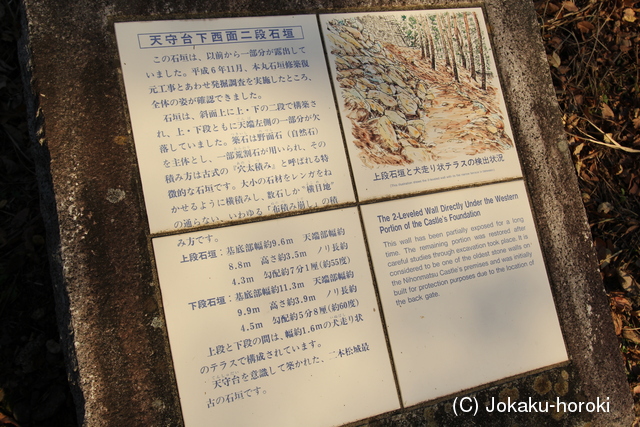 天守台下西面二段石垣
この石垣は、以前から一部分が露出して
いました。平成6年11月、本丸石垣修築復
元工事とあわせ発掘調査を実施したところ、
全体の姿が確認できました。
石垣は、斜面上に上・下の二段で構築さ
れ、上・下段ともに天端左側の一部分が欠
落していました。築石は野面石（自然石）
を主体とし、一部荒割石が用いられ、その
積み方は古式の『穴太積み』と呼ばれる特
徴的な石垣です。大小の石材をレンガをね
かせるように横積みし、数石しか"横目地"
の通らない、いわゆる「布積み崩し」の積
み方です。
上段石垣：基底部幅約9.6m 天端部幅約
8.8m 高さ約3.5m ノリ長約
4.3m 勾配約7分1厘(約55度)
下段石垣：基底部幅約11.3m 天端部幅約
9.9m 高さ約3.9m ノリ長約
4.5m 勾配約5分8厘(約60度)
上段と下段の間は、幅約1.6mの犬走り状
のテラスで構成されています。
天守台を意識して築かれた、二本松城最
古の石垣です。
上段石垣と犬走り状テラスの検出状況
The 2-Leveled Wall Directly Under the Western
Portion of the Castle's Foundation
This wall has been partially exposed for a long
time. The remaining portion was restored after
careful studies through excavation took place. It is
considered to be one of the oldest stone walls on
the Nihonmatsu Castle's premises and was initially
built for protection purposes due to the location of
the back gate.
(C) Jokaku-horoki